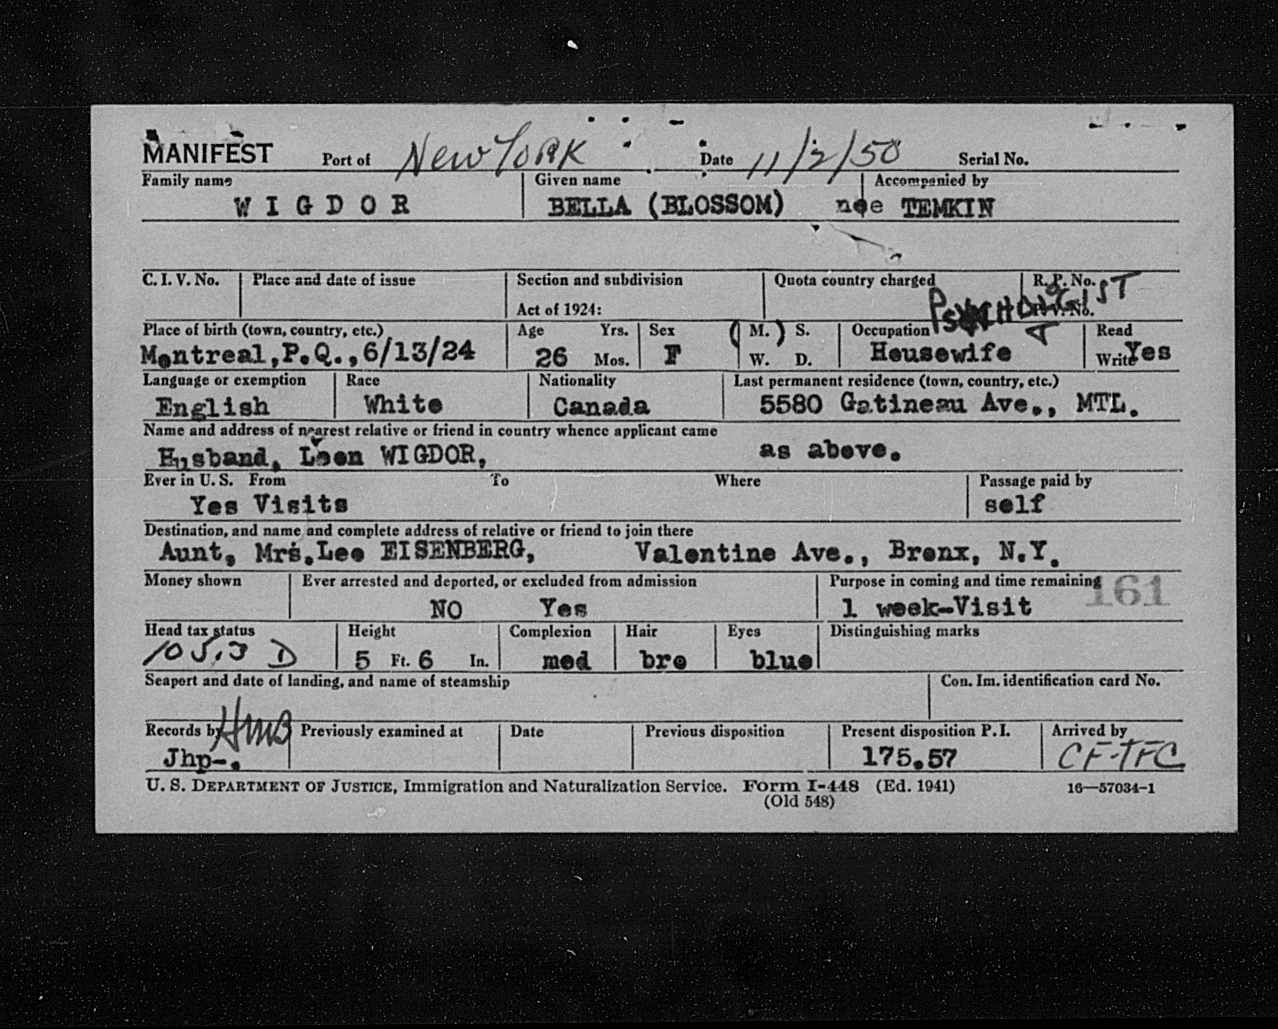 MANIFEST Port of New York Date 11/2/50 Serial No.
Family name Given name Accompanied by
WIGDOR BELLA (BLOSSOM) nee TEMKIN
C. I. V. No. Place and date of issue Section and subdivision Quota country charged R. P. No.
Act of 1924: P. V. No.
PSYCHOLOGIST
Place of birth (town, country, etc.) Age Yrs. Sex (M.) S. Occupation Read
Montreal,P.Q.,6/13/24 26 Mos. F W. D. Housewife Write Yes
Language or exemption Race Nationality Last permanent residence (town, country, etc.)
English White Canada 5580 Gatineau Ave., MTL.
Name and address of nearest relative or friend in country whence applicant came
Husband, Leon WIGDOR, as above.
Ever in U. S. From To Where Passage paid by
Yes Visits self
Destination, and name and complete address of relative or friend to join there
Aunt, Mrs.Lee EISENBERG, Valentine Ave., Bronx, N.Y.
Money shown Ever arrested and deported, or excluded from admission Purpose in coming and time remaining 161
NO Yes 1 week-Visit
Head tax status Height Complexion Hair Eyes Distinguishing marks
105.3 D 5 Ft. 6 In. med bro blue
Seaport and date of landing, and name of steamship Con. Im. identification card No.
Records by HMB Previously examined at Date Previous disposition Present disposition P. I. Arrived by
Jhp-. 175.57 CF-TFC
U. S. DEPARTMENT OF JUSTICE, Immigration and Naturalization Service. Form I-448 (Ed. 1941) 16—57034-1
(Old 548)